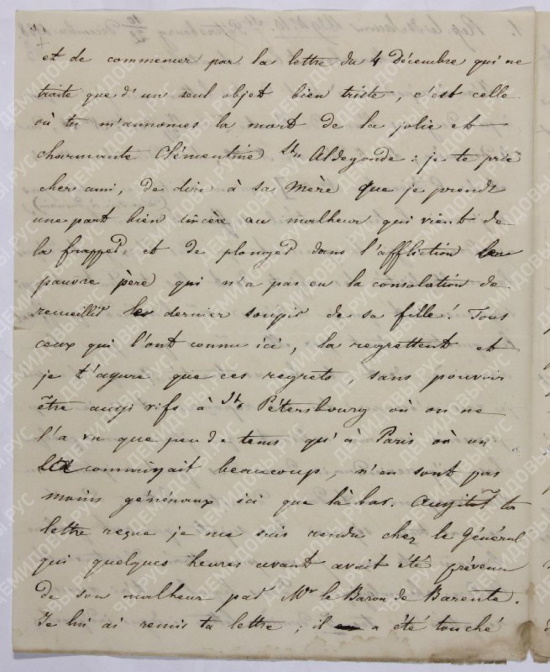 et de commencer par la lettre du 4 décembre qui ne
traite que d'un seul objet bien triste, c'est celle
où tu m'annonces la mort de la jolie et
charmante Clémentine Ste Aldegonde: je te prie
cher ami, de dire à sa mère que je prends
une part bien sincère au malheur qui vient de
la frapper et de plonger dans l'affliction un
pauvre père qui n'a pas eu la consolation de
recueillir le dernier soupir de sa fille! Tous
ceux qui l'ont connue ici, la regrettent et
je t'assure que ces regrets, sans pouvoir
être aussi vifs à St. Pétersbourg où on ne
l'a vu que peu de tems qu'à Paris où on
la connaissait beaucoup, n'en sont pas
moins généraux ici que là bas. Aussitot ta
lettre reçue je me suis rendu chez le Général
qui quelques heures avant avait été prévenu
de son malheur par Mr le Baron de Barante.
Je lui ai remis ta lettre; il a été touché